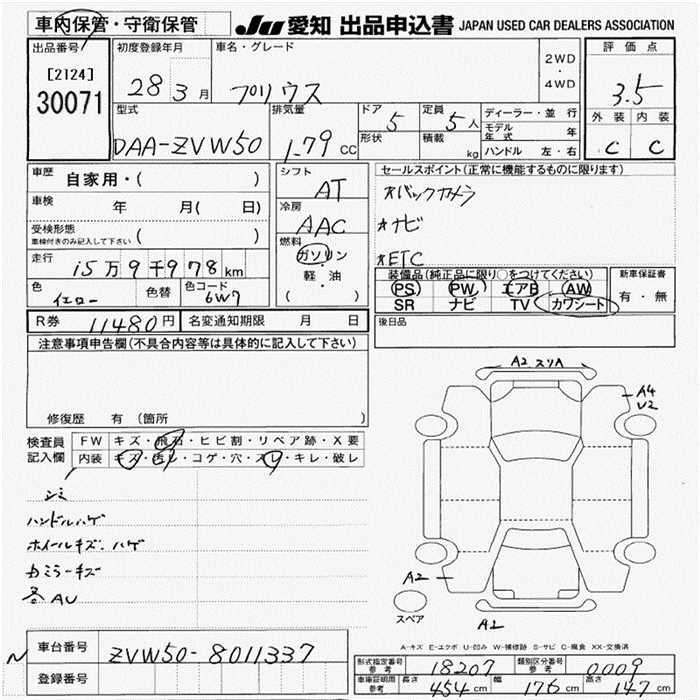 車内保管・守衛保管 JU 愛知 出品申込書 JAPAN USED CAR DEALERS ASSOCIATION
出品番号 初度登録年月 車名・グレード 2WD・4WD 評価点
[2124] 28 3月 プリウス 3.5
30071
型式 排気量 ドア 5 定員 5人 ディーラー・並行 外装 内装
DAA-ZVW50 1.79 CC 形状 積載 kg モデル年式 年 C C
ハンドル 左・右
車歴 自家用・( ) シフト AT セールスポイント(正常に機能するものに限ります)
車検 年 月(日) 冷房 AAC *バックカメラ
受検形態 ( ) *ナビ
車検付きのみ記入して下さい
燃料 ガソリン・軽・油 ( ) *ETC
走行 15万9千978km 装備品(純正品に限り○をつけてください) 新車保証書
色 イエロー 色替 色コード 6W7 PS PW エアB AW 有・無
SR ナビ TV カワシート
R券 11480円 名変通知期限 月 日 後日品
注意事項申告欄(不具合内容等は具体的に記入して下さい)
修復歴 有 (箇所 )
検査員記入欄 FW キズ・飛石・ヒビ割・リペア跡・X要
内装 キズ・汚レ・コゲ・穴・スレ・キレ・破レ
シミ
ハンドルハゲ
ホイールキズ・ハゲ
カミラーキズ
各AU
A2 スリA
A4
U2
A2
スペア
A2
A-キズ E-エクボ U-凹み W-補修跡 S-サビ C-腐食 XX-交換済
車台番号 ZVW50-8011337
登録番号
形式指定番号 参考 18207 類別区分番号 参考 0009
車庫証明用 参考 長さ 454cm 幅 176cm 高さ 147cm